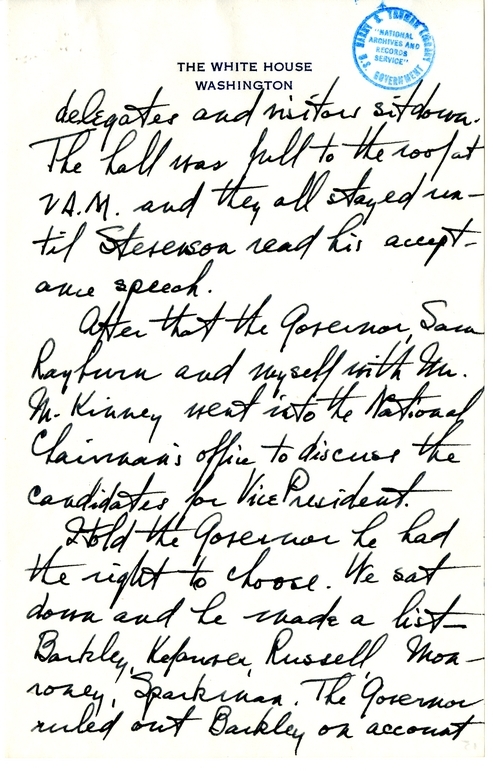 THE WHITE HOUSE
WASHINGTON
HARRY S. TRUMAN LIBRARY
"NATIONAL
ARCHIVES AND
RECORDS
SERVICE"
U.S. GOVERNMENT
delegates and visitors sit down.
The hall was full to the roof at
2 A.M. and they all stayed un-
til Stevenson read his accept-
ance speech.
After that the Governor, Sam
Rayburn and myself with Mr.
McKinney went into the National
Chairman's office to discuss the
candidates for Vice President.
I told the Governor he had
the right to choose. We sat
down and he made a list—
Barkley, Kefauver, Russell, Mon-
roney, Sparkman. The Governor
ruled out Barkley on account